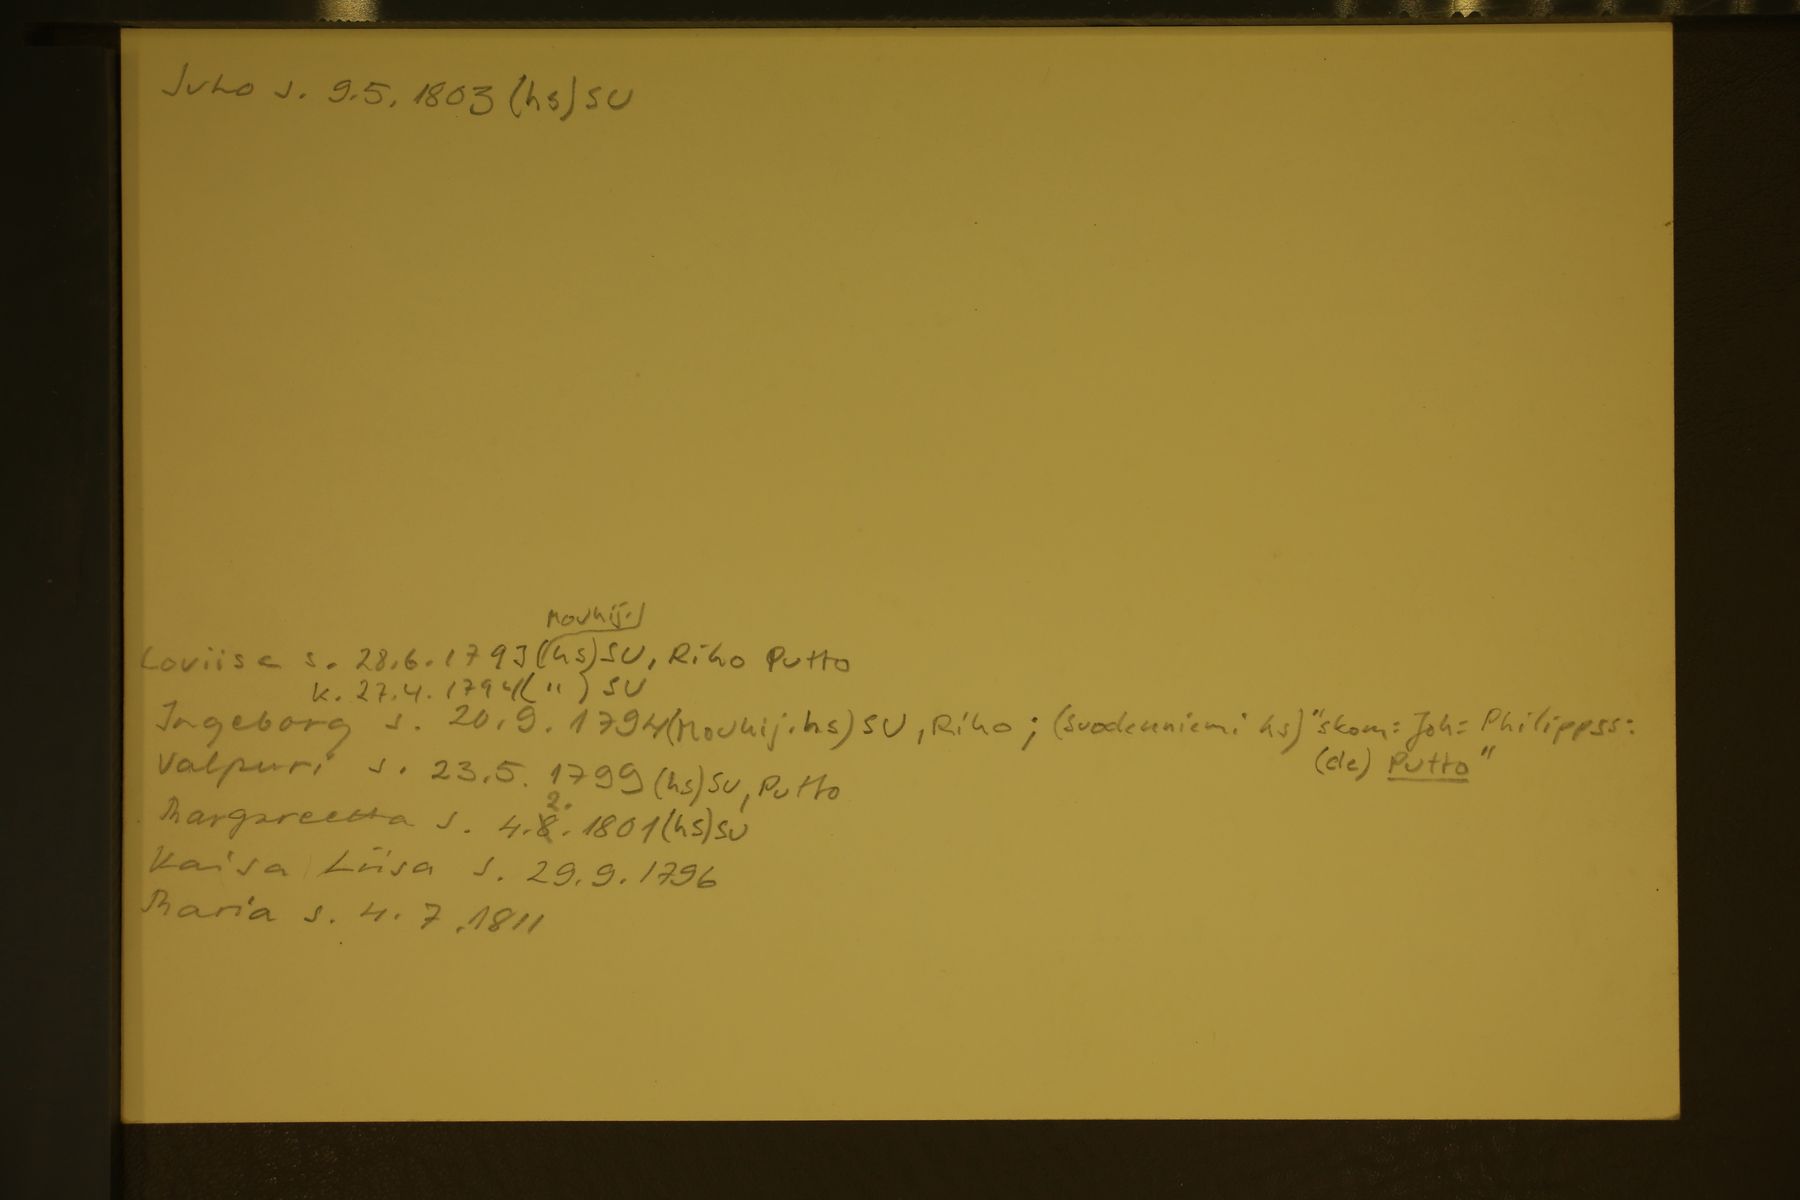 Juho s. 9.5. 1803 (hs) SU
Mouhij.
Loviisa s. 28.6.1793 (hs) SU, Riho Putto
k. 27.4. 1794 (") SU
Ingeborg s. 20.9. 1794 (Mouhij. hs) SU, Riho; (Suodenniemi hs) "skom= Joh= Philippss:
(de) Putto"
Valpuri s. 23.5. 1799 (hs) SU, Putto
2.
Margareetta s. 4.8. 1801 (hs) SU
Kaisa Liisa s. 29.9. 1796
Maria s. 4. 7. 1811